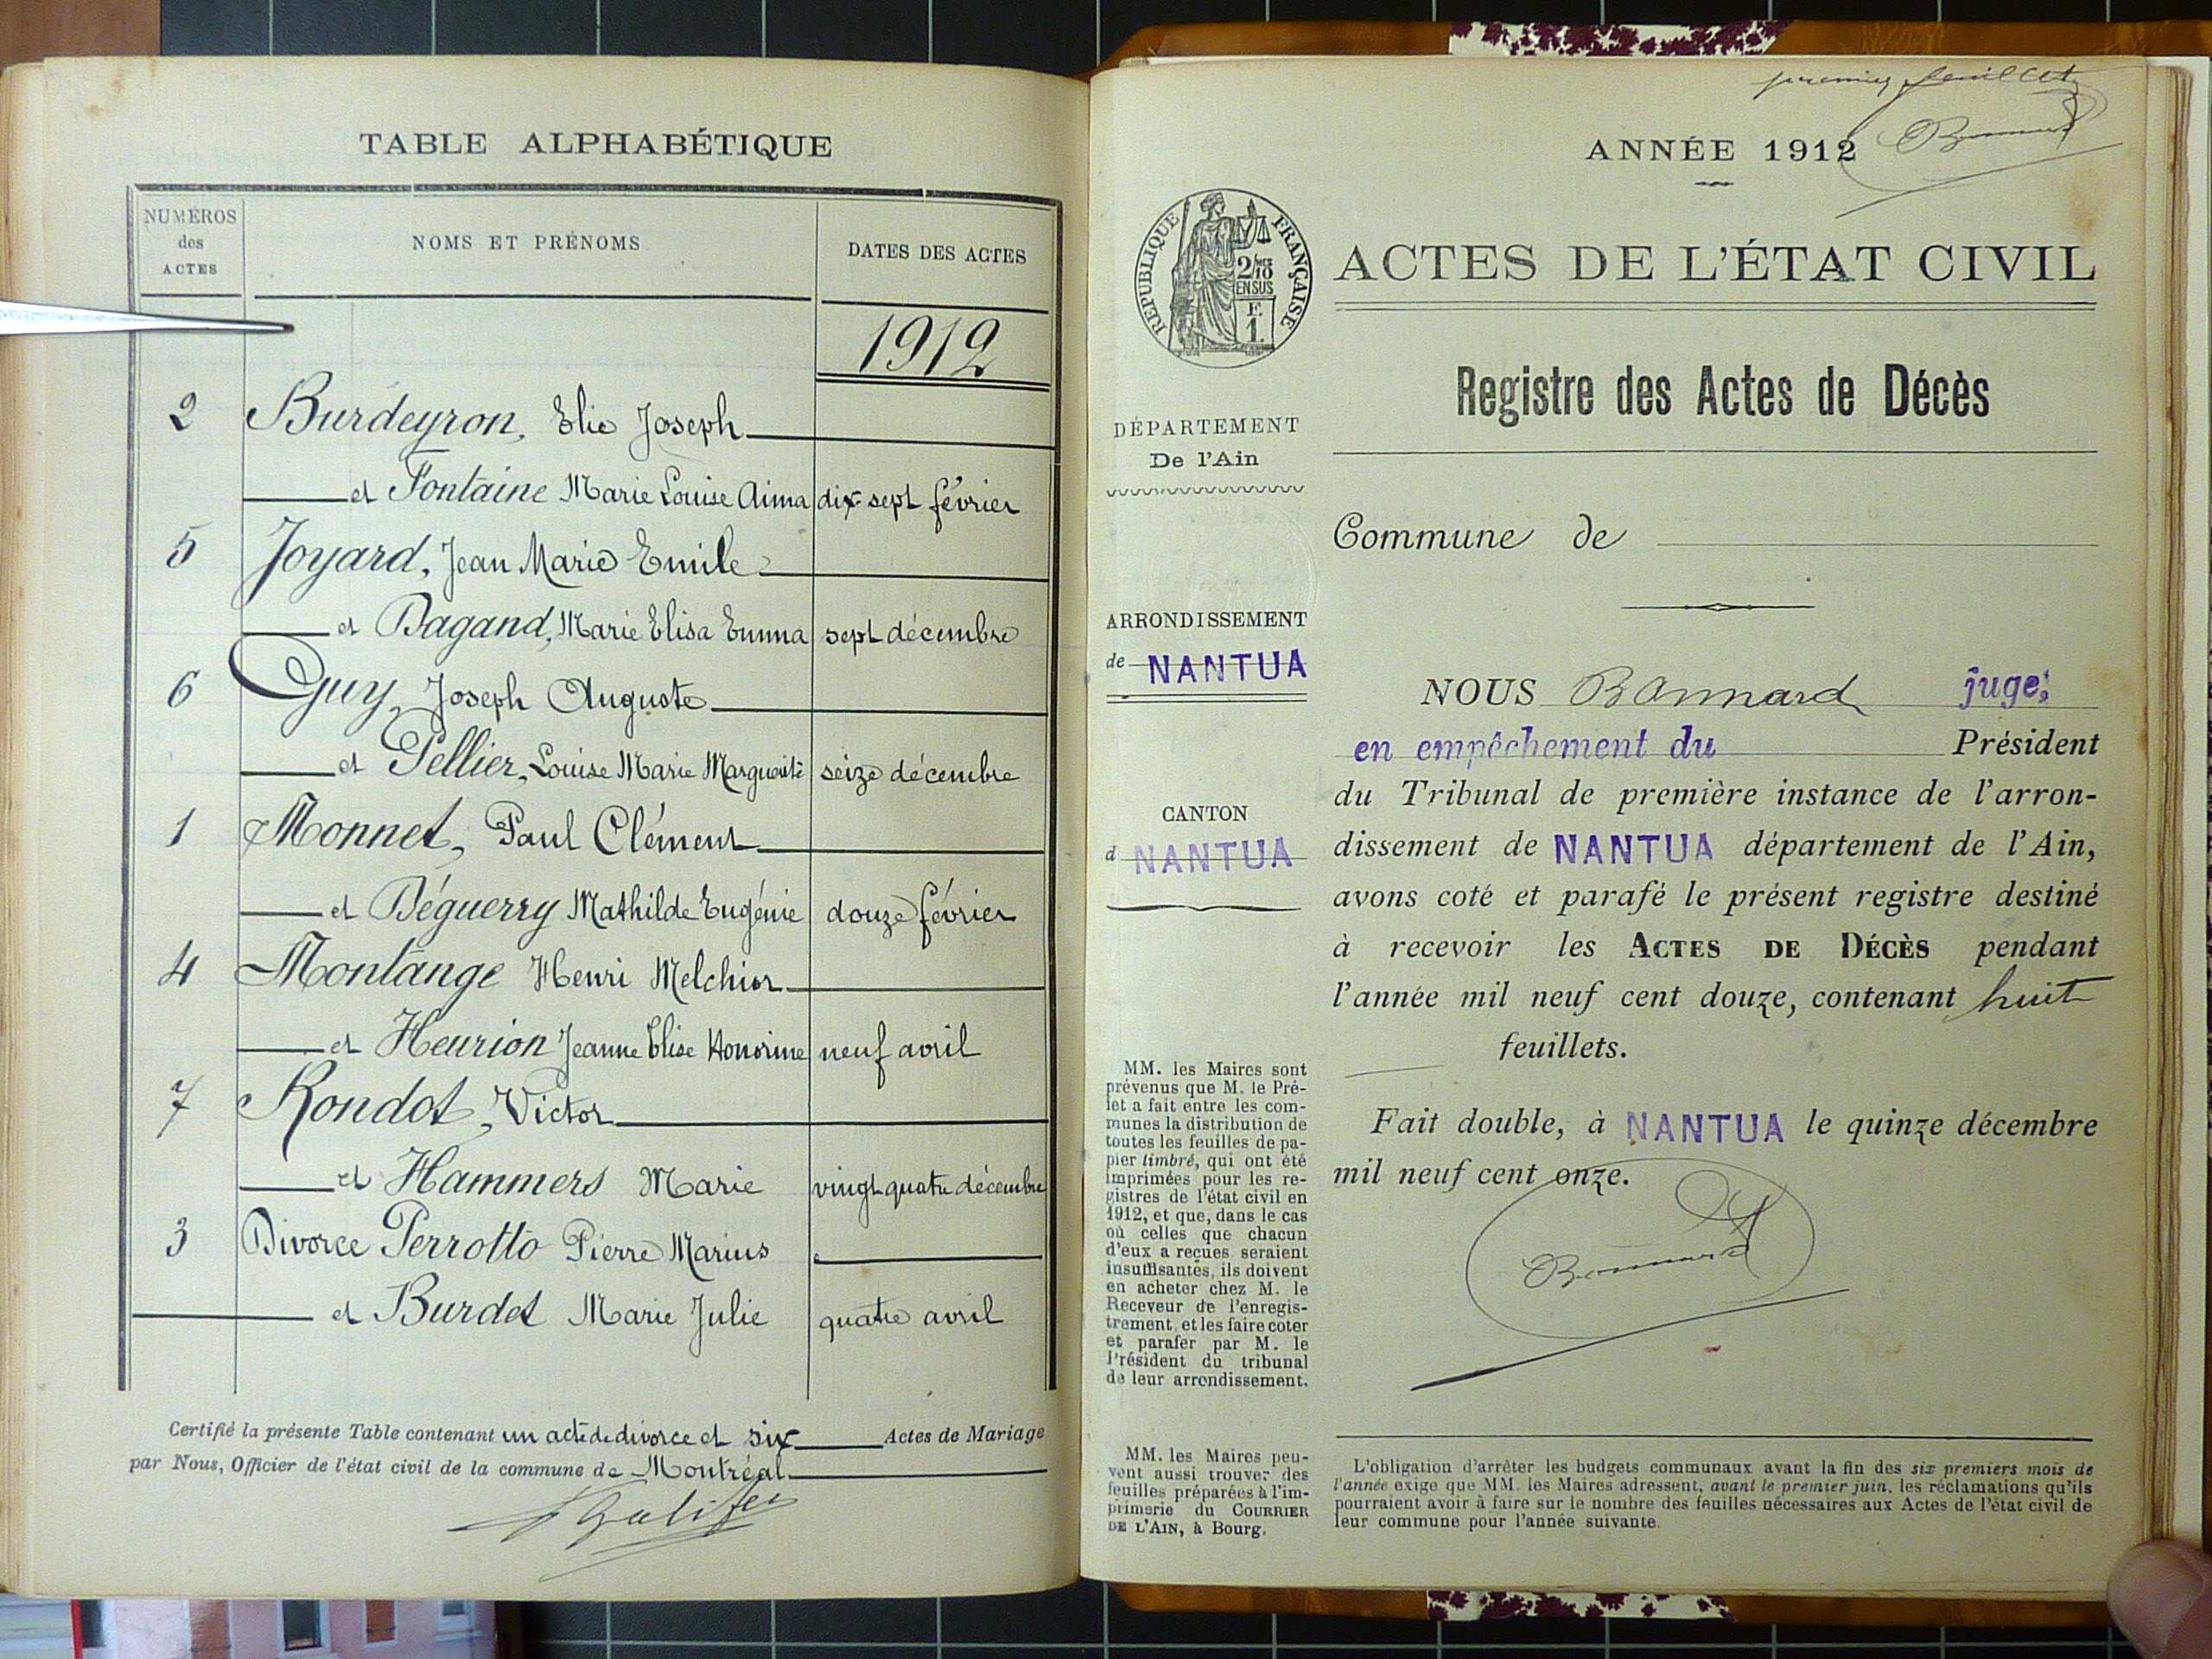 TABLE ALPHABÉTIQUE
NUMÉROS
des
ACTES
NOMS ET PRÉNOMS
DATES DES ACTES
1912
2 Burdeyron, Elie Joseph
et Fontaine Marie Louise Aima dix-sept février
5 Joyard, Jean Marie Emile
et Dagand, Marie Elisa Emma sept décembre
6 Guy, Joseph Auguste
et Pellier, Louise Marie Marguerite seize décembre
1 Monnet, Paul Clément
et Béguerry Mathilde Eugénie douze février
4 Montange Henri Melchior
et Heurion Jeanne Elise Honorine neuf avril
7 Rondot, Victor
et Hammers Marie vingt quatre décembre
3 Divorce Perrotto Pierre Marius
et Burdet Marie Julie quatre avril
Certifié la présente Table contenant un acte de divorce et six Actes de Mariage
par Nous, Officier de l'état civil de la commune de Montréal
premier feuillet
ANNÉE 1912
RÉPUBLIQUE FRANÇAISE
2/10
EN SUS
F.
1.
ACTES DE L'ÉTAT CIVIL
Registre des Actes de Décès
DÉPARTEMENT
De l'Ain
Commune de
ARRONDISSEMENT
de NANTUA
CANTON
d NANTUA
NOUS Bonnard juge;
en empêchement du Président
du Tribunal de première instance de l'arron-
dissement de NANTUA département de l'Ain,
avons coté et parafé le présent registre destiné
à recevoir les ACTES DE DÉCÈS pendant
l'année mil neuf cent douze, contenant huit
feuillets.
Fait double, à NANTUA le quinze décembre
mil neuf cent onze.
Bonnard
MM. les Maires sont
prévenus que M. le Pré-
fet a fait entre les com-
munes la distribution de
toutes les feuilles de pa-
pier timbré, qui ont été
imprimées pour les re-
gistres de l'état civil en
1912, et que, dans le cas
où celles que chacun
d'eux a reçues seraient
insuffisantes, ils doivent
en acheter chez M. le
Receveur de l'enregis-
trement, et les faire coter
et parafer par M. le
Président du tribunal
de leur arrondissement.
MM. les Maires peu-
vent aussi trouver des
feuilles préparées à l'im-
primerie du COURRIER
DE L'AIN, à Bourg.
L'obligation d'arrêter les budgets communaux avant la fin des six premiers mois de
l'année exige que MM. les Maires adressent, avant le premier juin, les réclamations qu'ils
pourraient avoir à faire sur le nombre des feuilles nécessaires aux Actes de l'état civil de
leur commune pour l'année suivante.